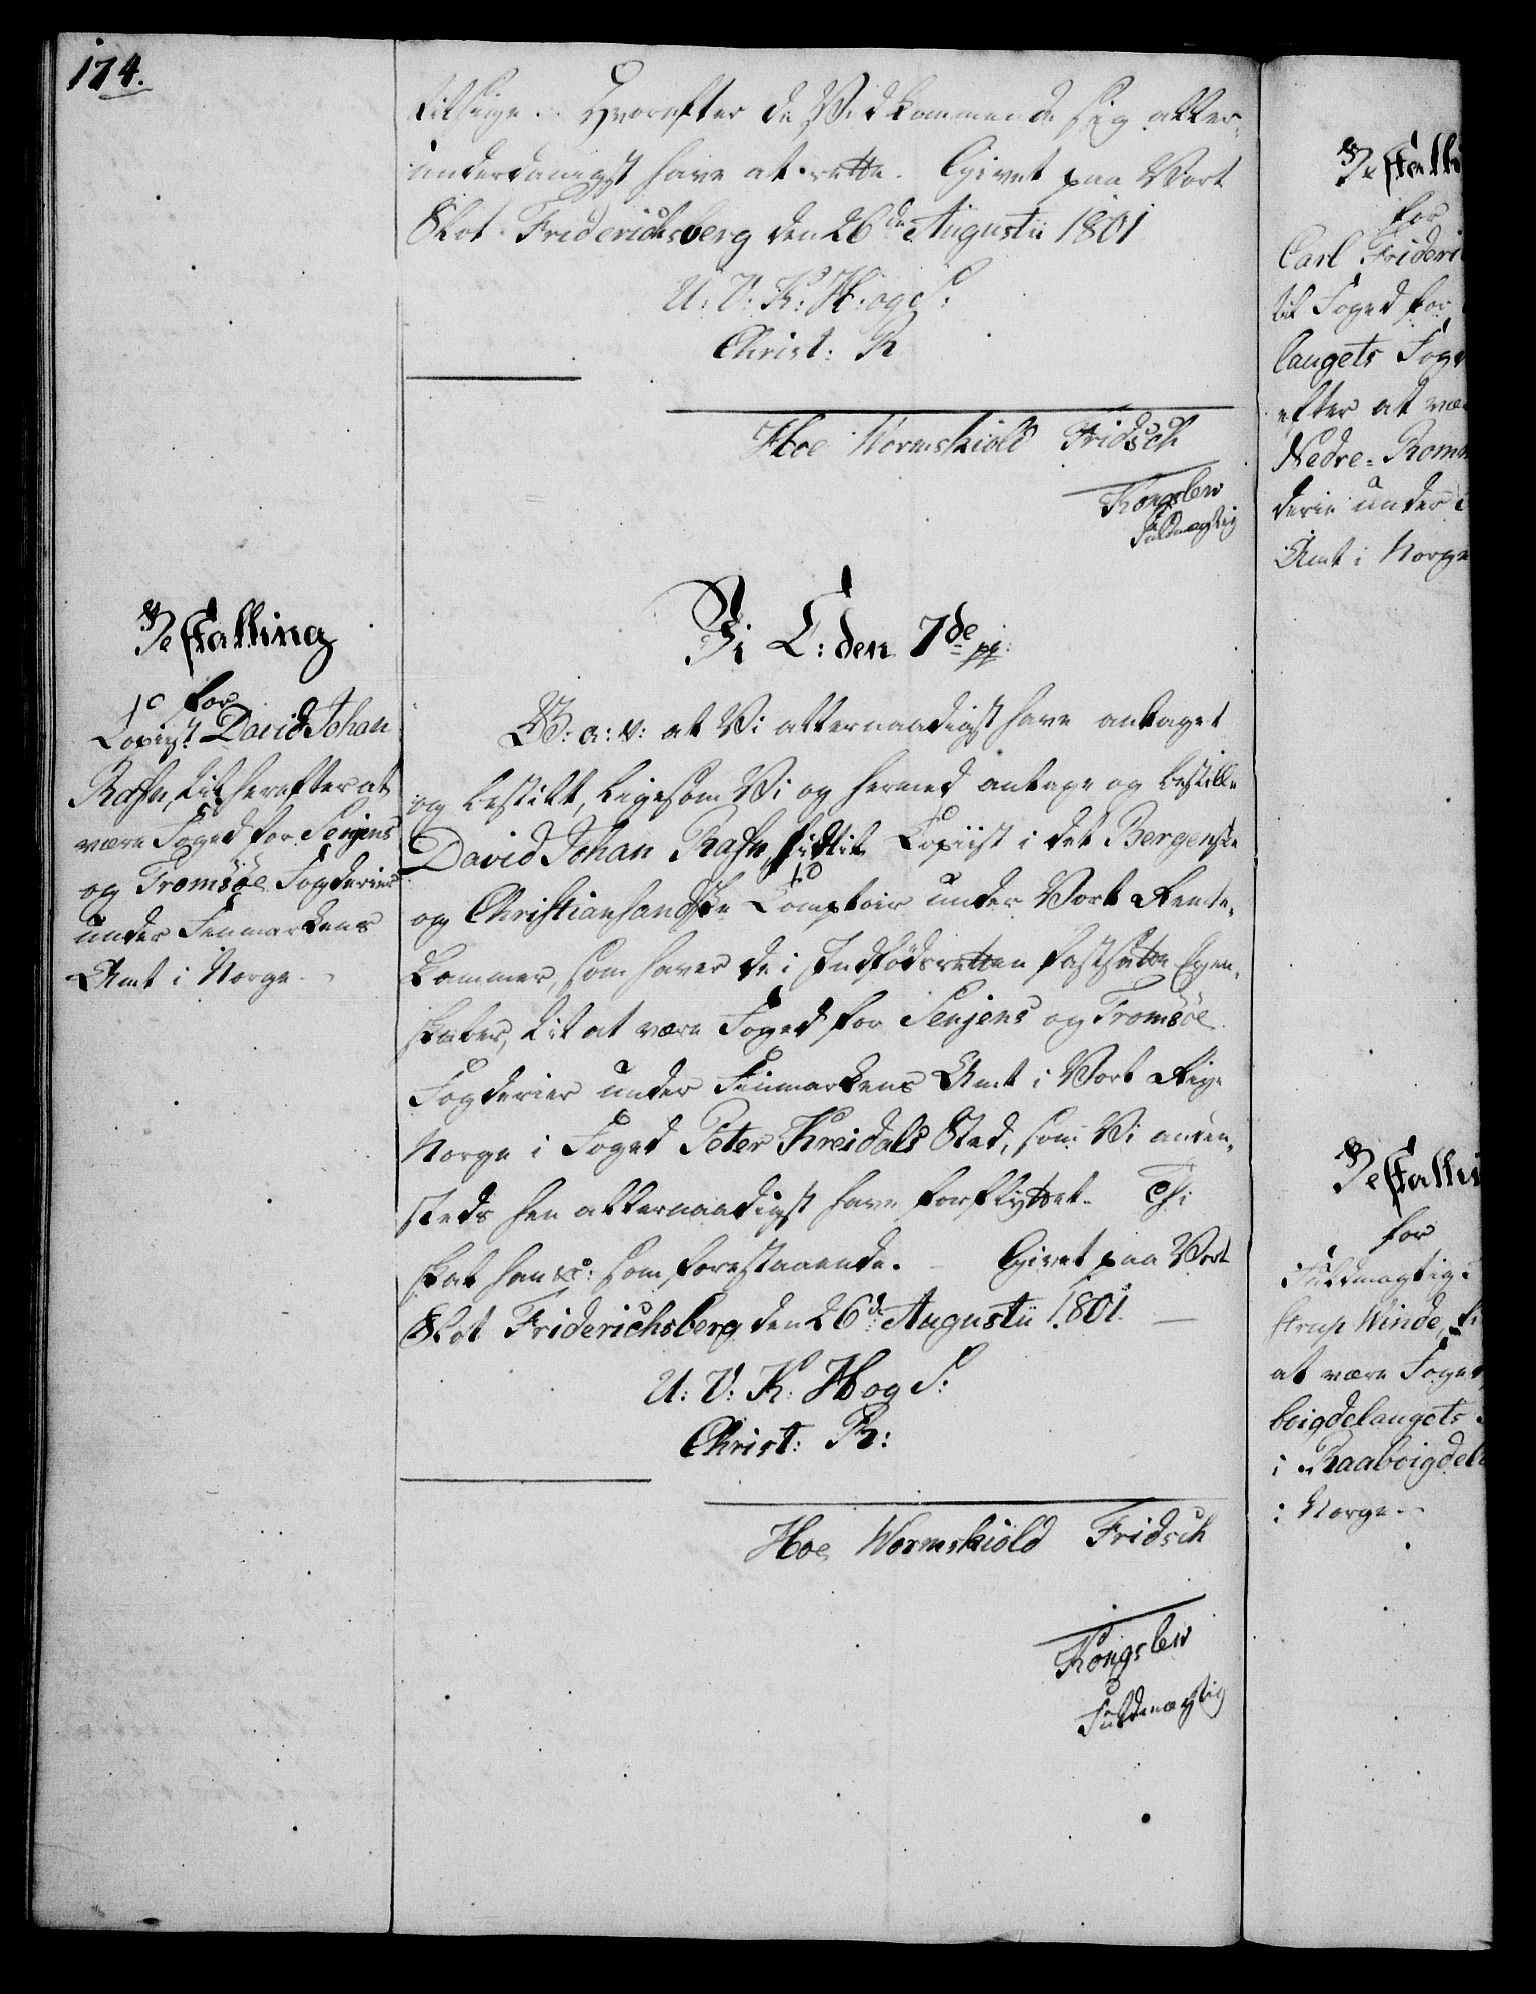 174.
tilsige. Hvorefter de Vedkommende sig aller-
underdanigst have at rette. Givet paa Vort
Slot Friderichsberg den 26de Augustii 1801
U: V: K: H: og S:
Christ: R
Hoe Wormskiold Fridsch
Kongslew
Fuldmægtig
Bestalling
for
Copiist David Johan
Rafn, til herefter at
være Foged for Senjens
og Tromsöe Fogderier
under Finmarkens
Amt i Norge.
Vi C: den 7de pp:
G: a: v: at Vi allernaadigst have antaget
og bestilt, ligesom Vi og hermed antage og bestille
David Johan Rafn, hidtil Copiist i det Bergenske
og Christiansandske Comptoir under Vort Rente-
kammer, som haver de i Indfødsretten fastsatte Egen-
skaber, til at være Foged for Senjens og Tromsöe
Fogderier under Finmarkens Amt i Vort Rige
Norge i Foged Peter Kreidals Sted, som Vi anden-
steds hen allernaadigst have forflyttet. Thi
skal han &c: som forestaaende. Givet paa Vort
Slot Friderichsberg den 26de Augustii 1801.
U: V: K: H og S:
Christ: R:
Hoe Wormskiold Fridsch
Kongslew
Fuldmægtig
for
Carl Frideri
til Foged for
laugets Fog
efter at væ
Nedre-Rom
derie under
Amt i Norge
for
Fuldmægtig
strup Winde, ti
at være Foged
boigdelaugets
i Raaboigdel
i Norge.